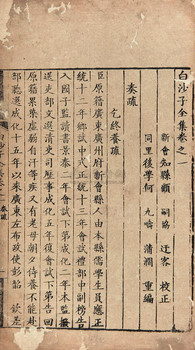 白沙子全集卷之一
新會知縣顧嗣協迂客校正
同里後學何九疇蒲澗重編
奏疏
乞終養疏
臣原籍廣東廣州府新會縣人由本縣儒學生員應正
統十二年鄉試中式正統十三年會試禮部中副榜告
入國子監讀書景泰二年會試下第成化二年本監撥
選吏部文選清吏司歷事成化五年復會試下第告回
原籍累染虛弱自汗等疾又有老母朝夕侍養不能赴
部聽選成化十五年以來廣東左布政使彭韶欽差